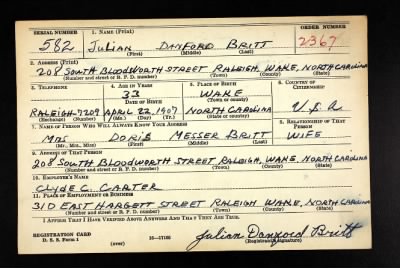 SERIAL NUMBER 1. NAME (Print) ORDER NUMBER
582 JULIAN DANFORD BRITT 2367
(First) (Middle) (Last)
2. ADDRESS (Print)
208 SOUTH BLOODWORTH STREET RALEIGH, WAKE, NORTH CAROLINA
(Number and street or R. F. D. number) (Town) (County) (State)
3. TELEPHONE 4. AGE IN YEARS 5. PLACE OF BIRTH 6. COUNTRY OF CITIZENSHIP
33 WAKE
DATE OF BIRTH (Town or county)
RALEIGH-7209 APRIL 22, 1907 NORTH CAROLINA U.S.A
(Exchange) (Number) (Mo.) (Day) (Yr.) (State or country)
7. NAME OF PERSON WHO WILL ALWAYS KNOW YOUR ADDRESS 8. RELATIONSHIP OF THAT PERSON
MRS. DORIS MESSER BRITT WIFE
(Mr., Mrs., Miss) (First) (Middle) (Last)
9. ADDRESS OF THAT PERSON
208 SOUTH BLOODWORTH STREET RALEIGH, WAKE, NORTH CAROLINA
(Number and street or R. F. D. number) (Town) (County) (State)
10. EMPLOYER'S NAME
CLYDE C. CARTER
11. PLACE OF EMPLOYMENT OR BUSINESS
310 EAST HARGETT STREET RALEIGH WAKE, NORTH CAROLINA
(Number and street or R. F. D. number) (Town) (County) (State)
I AFFIRM THAT I HAVE VERIFIED ABOVE ANSWERS AND THAT THEY ARE TRUE.
REGISTRATION CARD
D. S. S. Form 1 (over) 16—17105 Julian Danford Britt
(Registrant's signature)